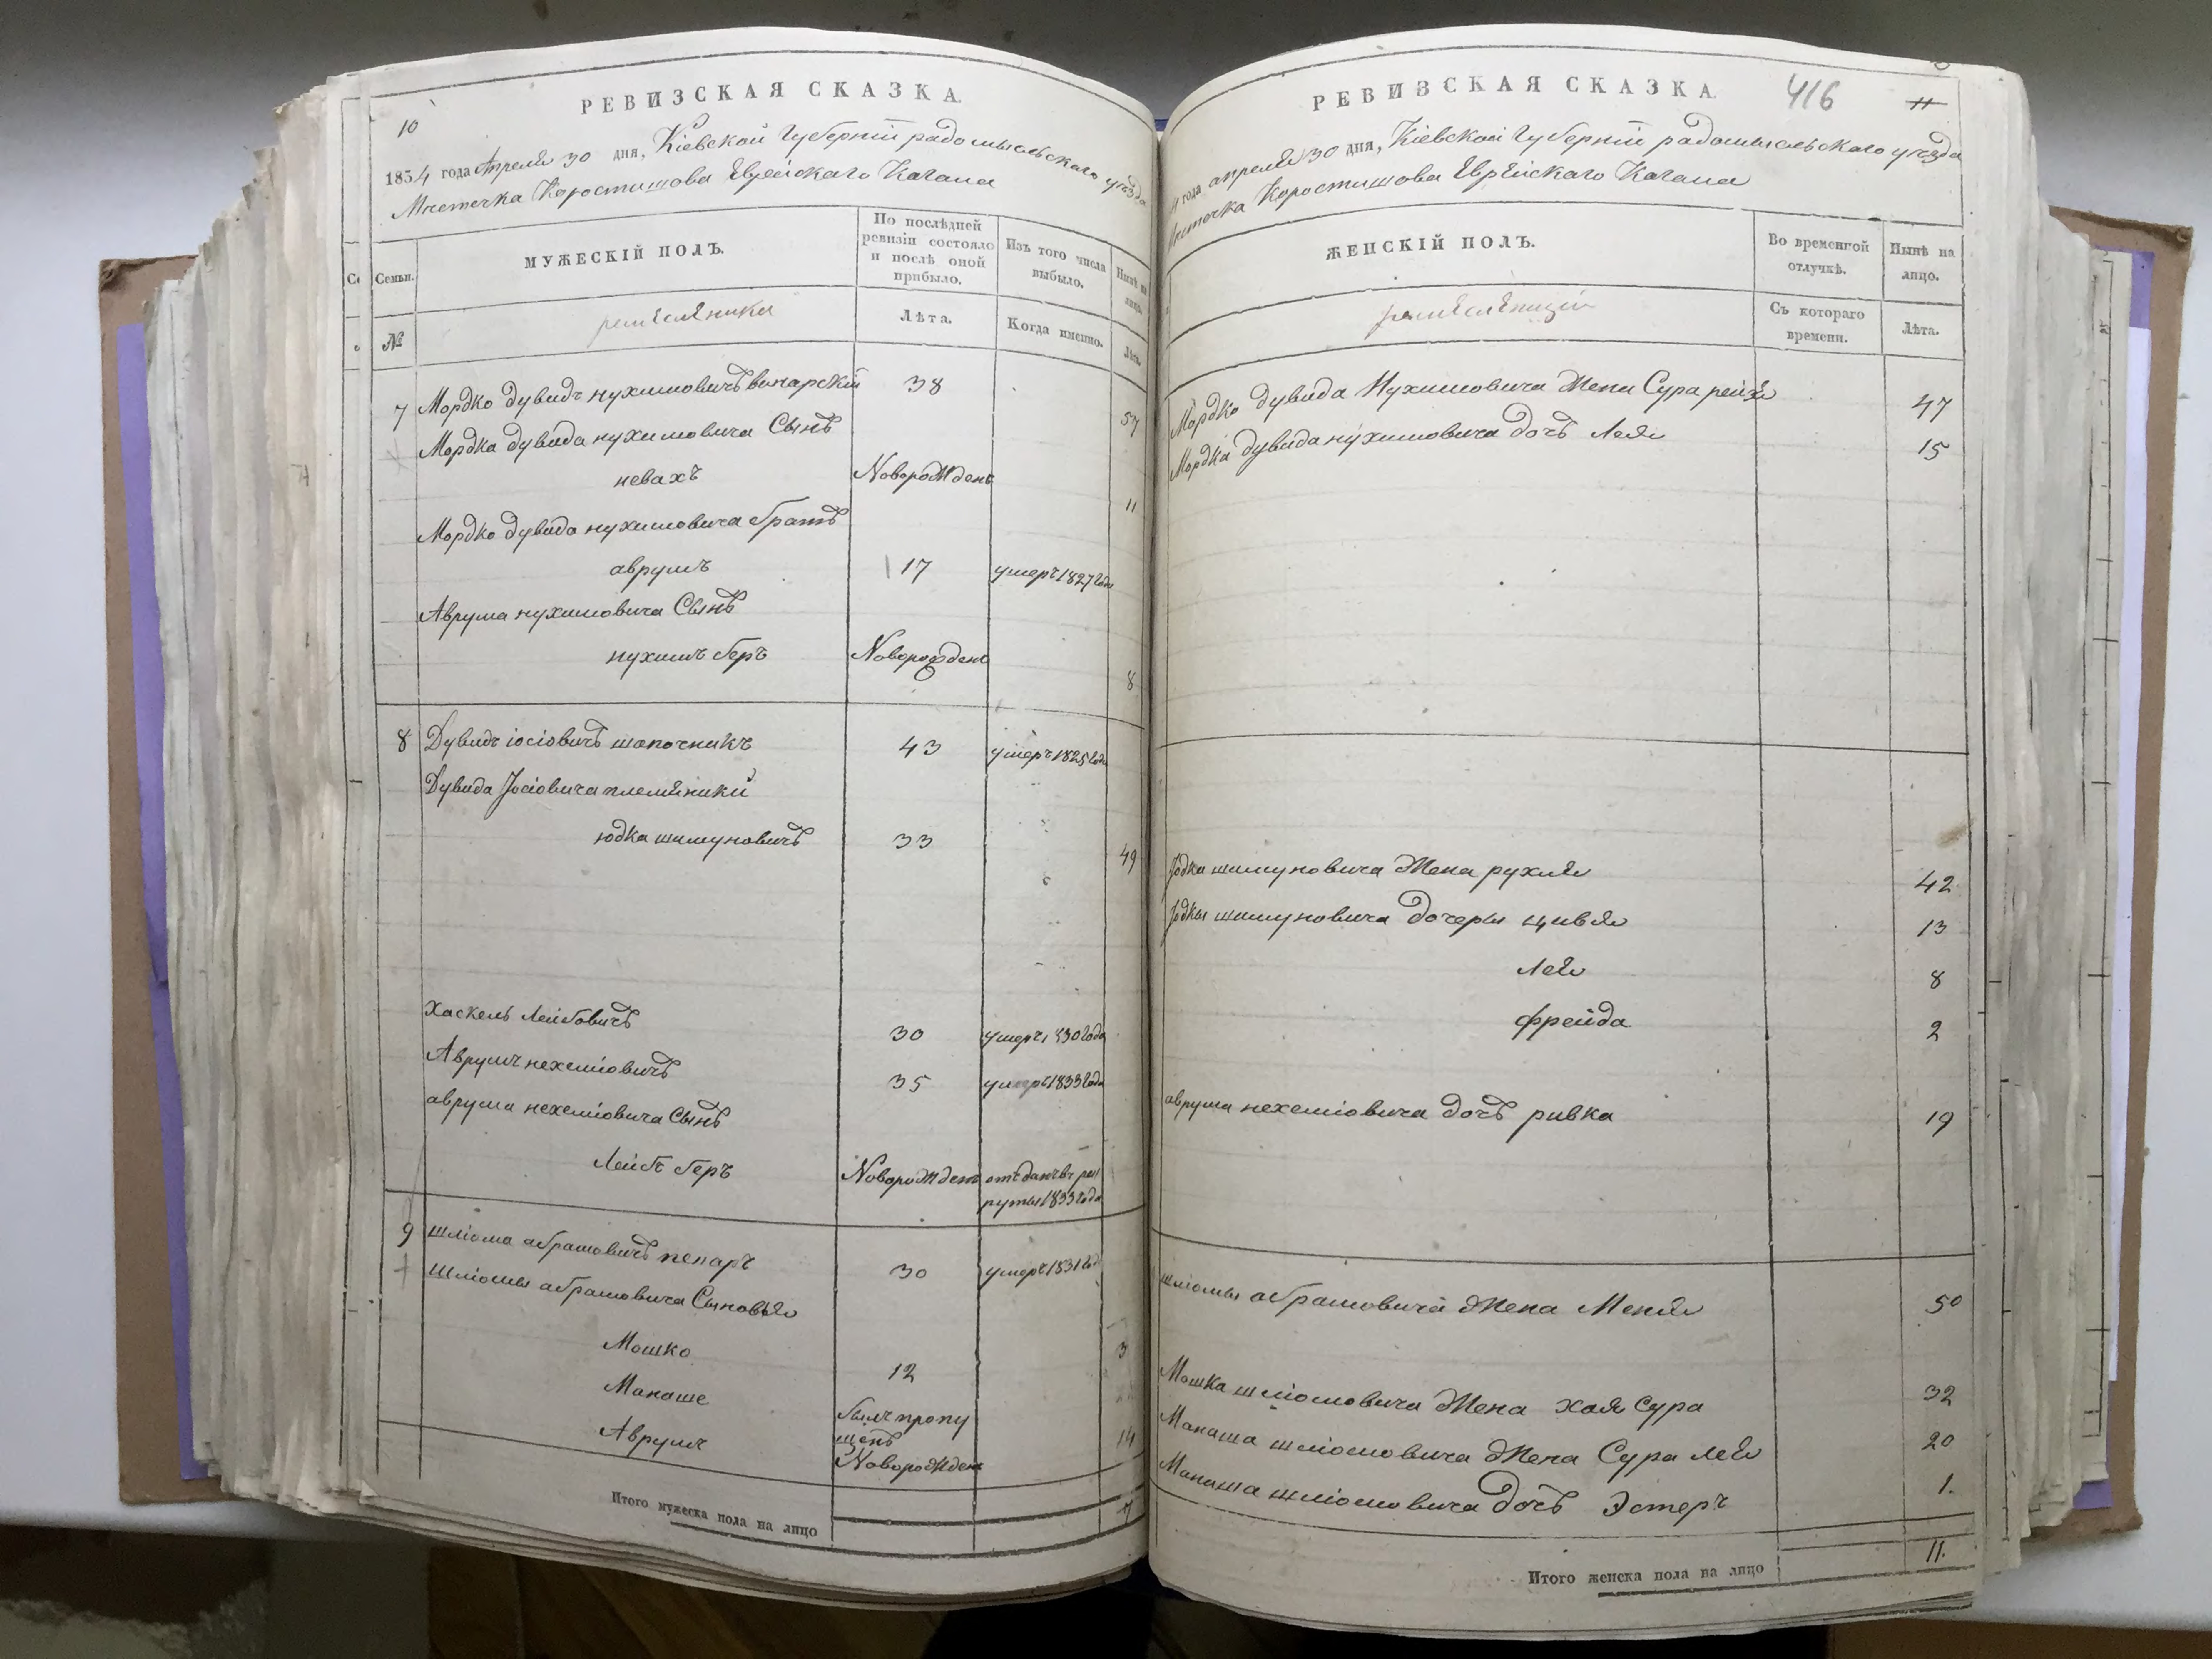 10
РЕВИЗСКАЯ СКАЗКА.
1834 года Апреля 30 дня, Кіевской Губерніи радомысльскаго уезда
Местечка Коростишова Еврейскаго Кагала
Семьи.
МУЖЕСКІЙ ПОЛЪ.
По послѣдней ревизіи состояло и послѣ оной прибыло.
Изъ того числа выбыло.
Нынѣ на лицо.
№
ремесленики
Лѣта.
Когда именно.
Лѣта.
7 Мордко дувидъ нухимовичъ винарскій 38
57
Мордка дувида нухимовича Сынъ
невахъ Новорожденъ
11
Мордко дувида нухимовича братъ
аврумъ 17 умеръ 1827 года
Аврума нухимовича Сынъ
нухимъ беръ Новорожденъ
8
8 Дувидъ іосіовичъ шапочникъ 43 умеръ 1825 года
Дувида Іосіовича племеники
юдка шимуновичъ 33
49
Хаскель Лейбовичъ 30 умеръ 1830 года
Аврумъ нехеміовичъ 35 умеръ 1833 года
аврума нехеміовича Сынъ
Лейбъ беръ Новорожденъ отъданъ въ рек
руты 1833 года
9 шліома абрамовичъ пекаръ 30 умеръ 1831 год
Шліомы абрамовича Сыновья
Мошко 12
Манаше былъ пропу
щенъ
Аврумъ Новорожденъ
14
Итого мужеска пола на лицо 7
РЕВИЗСКАЯ СКАЗКА.
416
11
4 года апреля 30 дня, Кіевской Губерніи радомысльскаго уезда
Местечка Коростишова Еврейскаго Кагала
ЖЕНСКІЙ ПОЛЪ.
Во временной отлучкѣ.
Нынѣ на лицо.
Съ котораго времени.
Лѣта.
Мордко дувида Нухимовича Жена Сура рейзя 47
Мордка дувида нухимовича дочъ Лея 15
Юдка шимуновича Жена рухля 42
Юдки шимуновича дочеры цивья 13
Лея 8
фрейда 2
аврума нехеміовича дочъ ривка 19
шліомы абрамовича Жена Меня 50
Мошка шліомовича Жена хая Сура 32
Манаша шліомовича Жена Сура лея 20
Манаша шліомовича дочъ Эстеръ 1.
Итого женска пола на лицо 11.